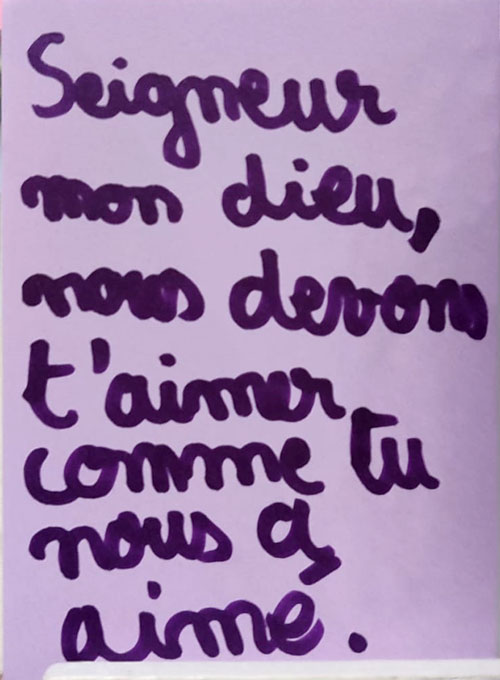 Seigneur
mon dieu,
nous devons
t'aimer
comme tu
nous as
aimé.